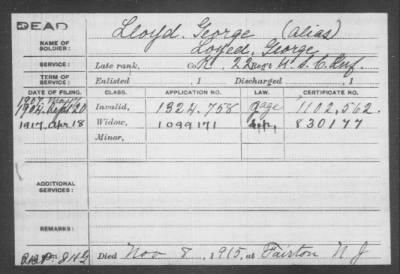 DEAD
Lloyd, George (alias)
NAME OF SOLDIER:
Loyed, George
SERVICE:
Late rank, Co. K, 22 Reg't U.S.C. Inf.
TERM OF SERVICE:
Enlisted , 1 Discharged , 1
DATE OF FILING. CLASS. APPLICATION NO. LAW. CERTIFICATE NO.
1904, Sept 20 Invalid, 1324.758 1102,562.
1917, Apr 18 Widow, 1099171 830177
Minor,
ADDITIONAL SERVICES:
Died Nov 8, 1915, at Fairton N J